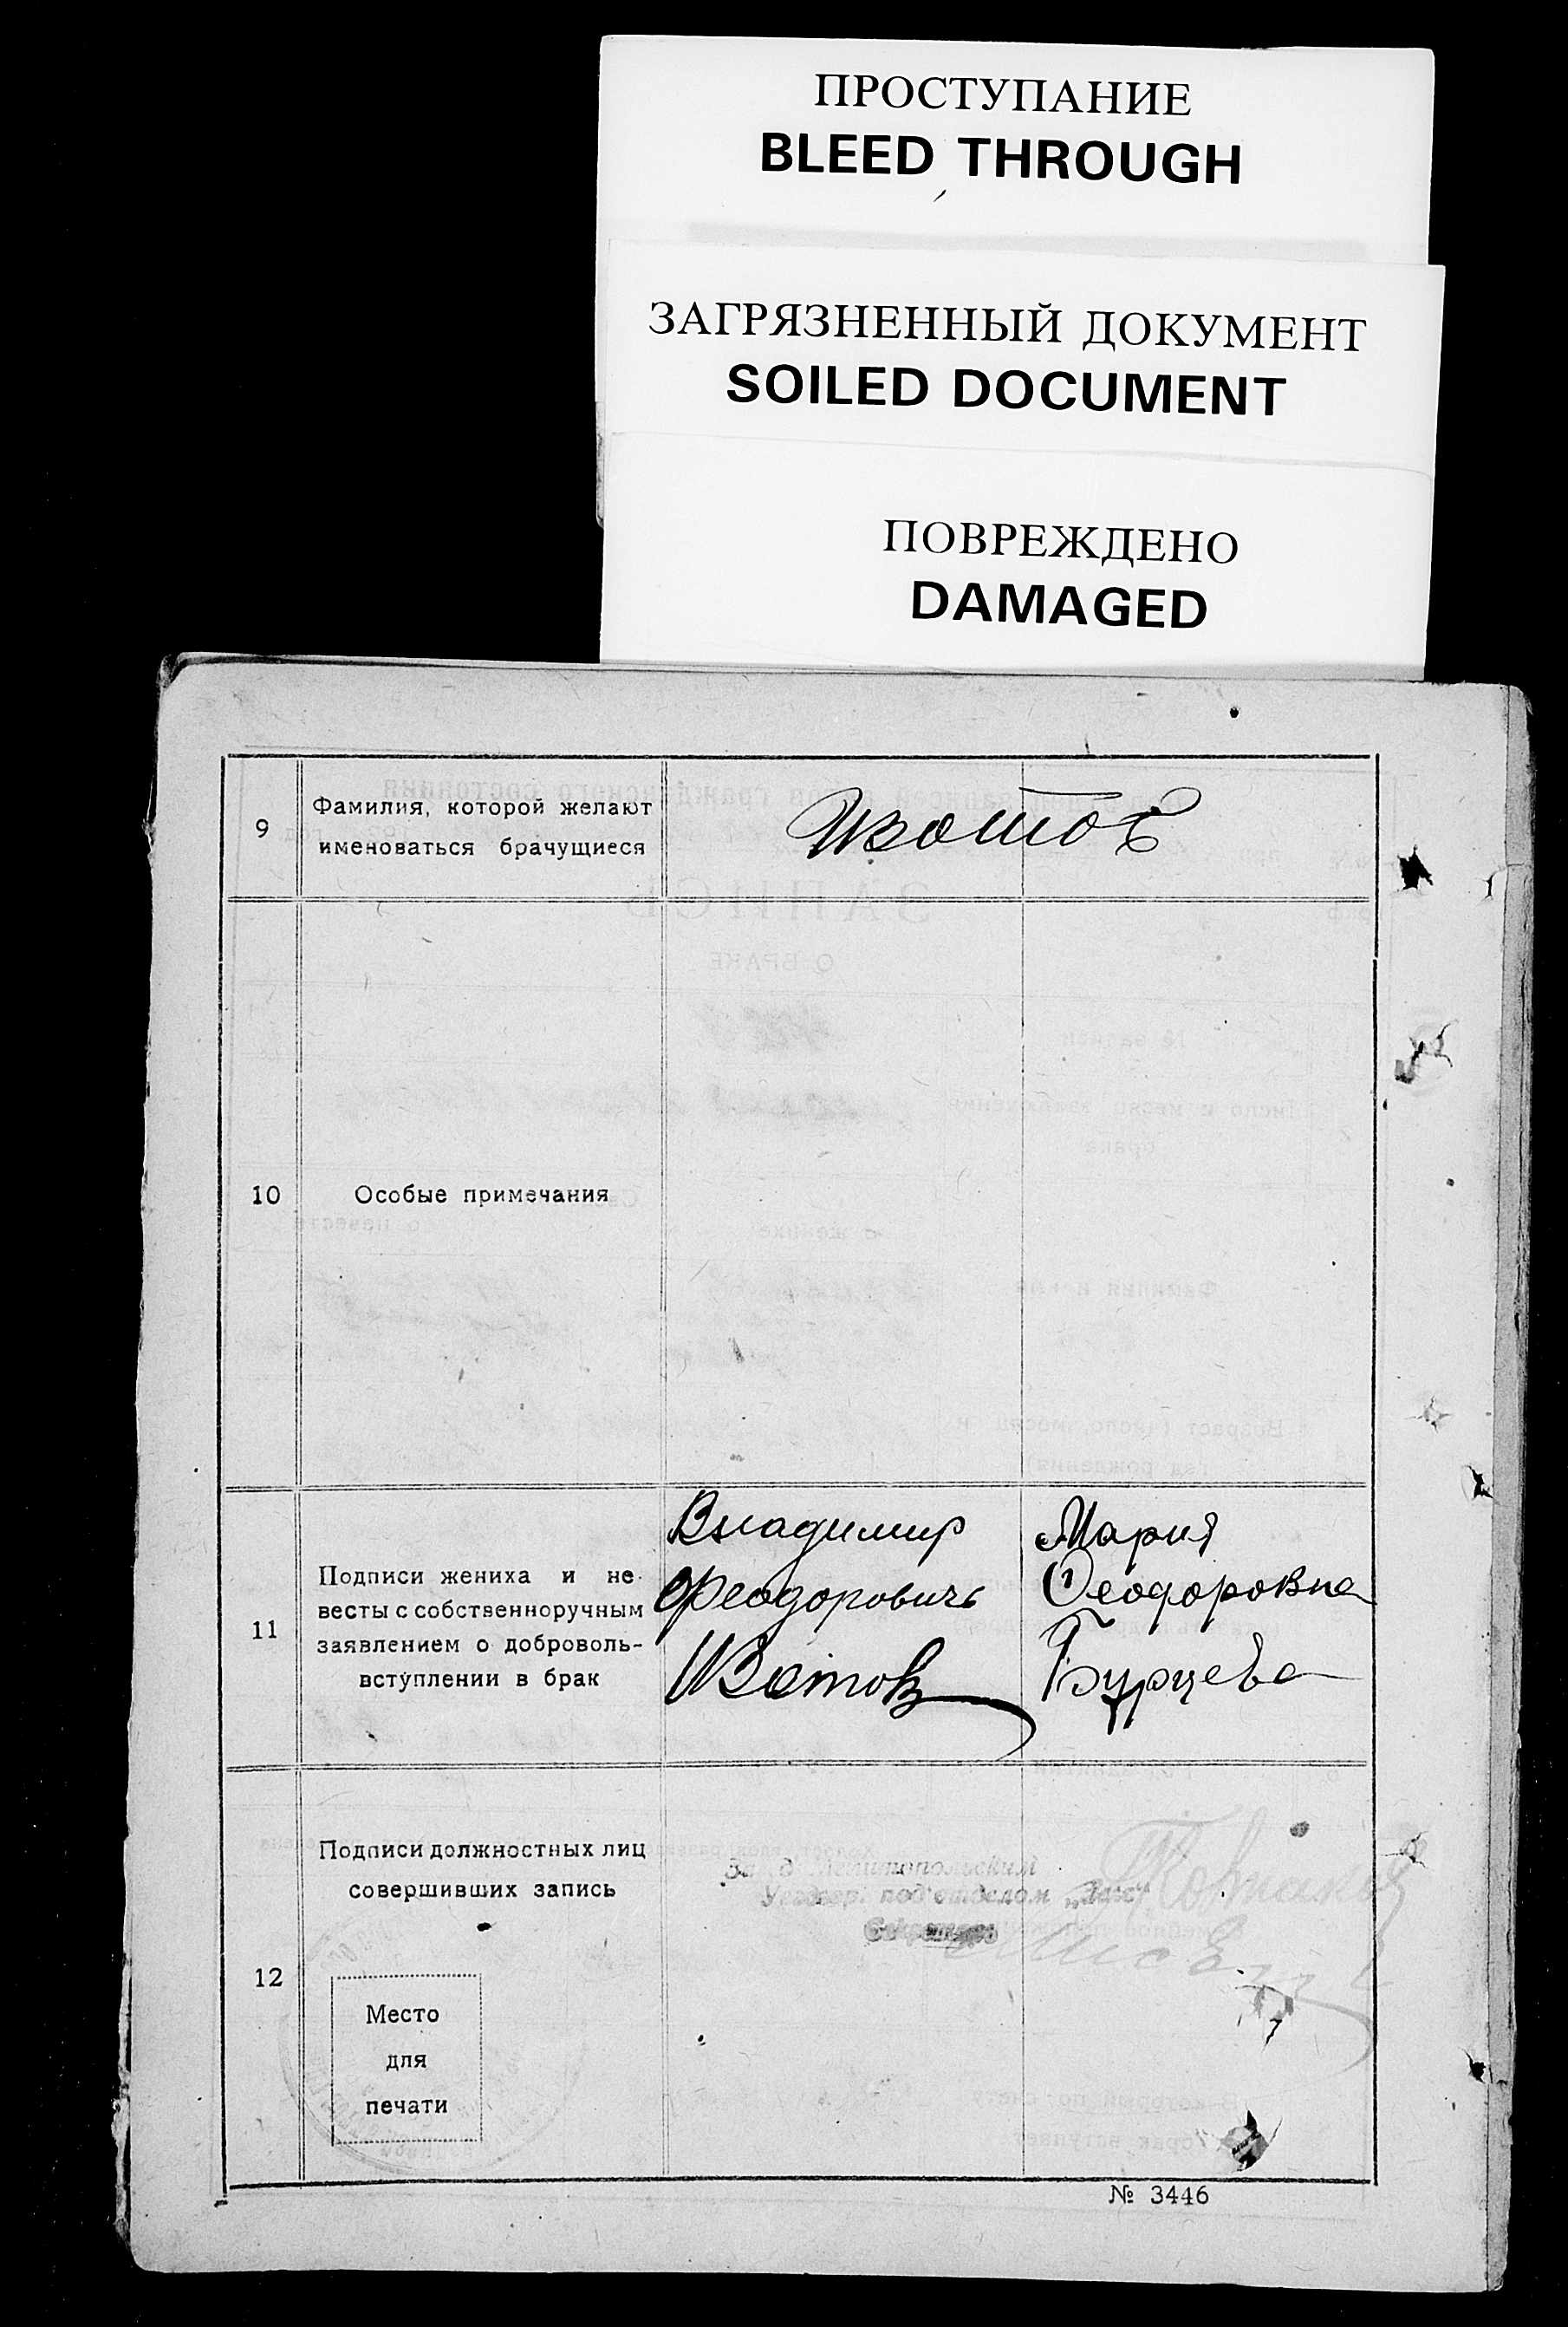 ПРОСТУПАНИЕ
BLEED THROUGH
ЗАГРЯЗНЕННЫЙ ДОКУМЕНТ
SOILED DOCUMENT
ПОВРЕЖДЕНО
DAMAGED
9
Фамилия, которой желают
именоваться брачущиеся
Изотов
10
Особые примечания
11
Подписи жениха и не-
весты с собственноручным
заявлением о доброволь-
вступлении в брак
Владимир
Феодоровичь
Изотов
Мария
Феодоровна
Бурцева
12
Подписи должностных лиц
совершивших запись
под'отделом
Место
для
печати
№ 3446